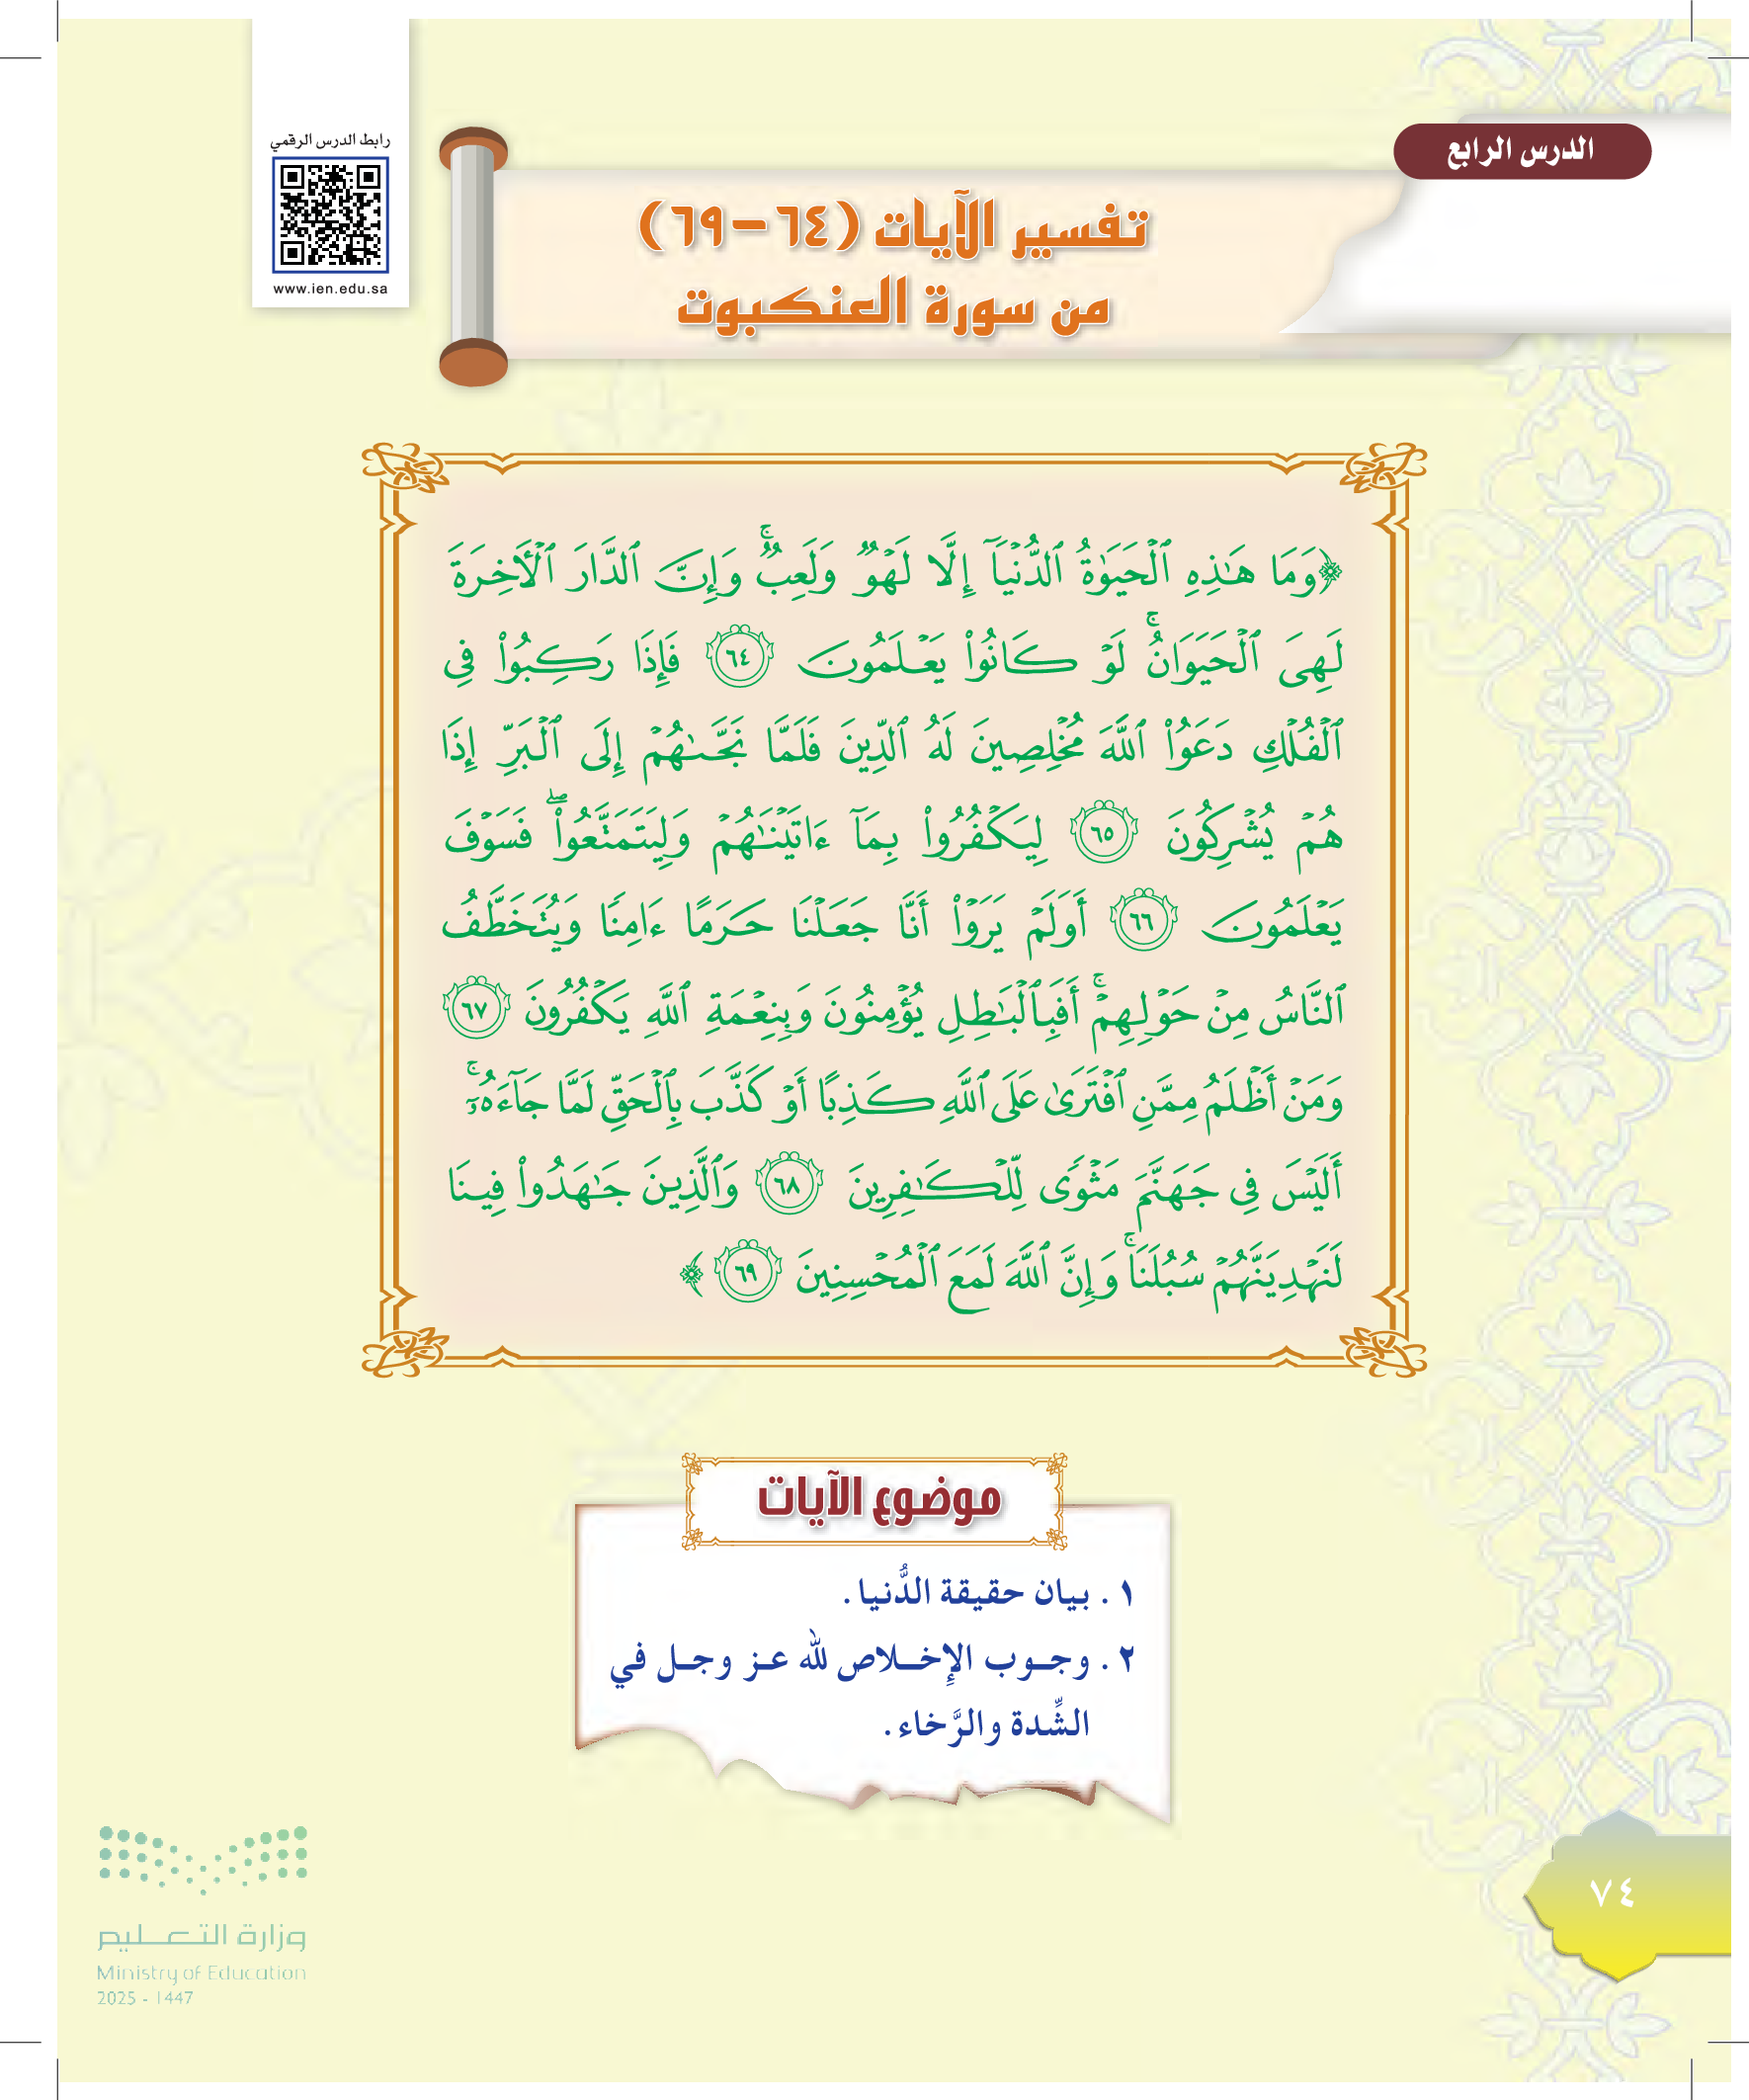 الدرس الرابع
رابط الدرس الرقمي
www.ien.edu.sa
تفسير الآيات (٦٤-٦٩)
من سورة العنكبوت
﴿وَمَا هَٰذِهِ ٱلْحَيَوٰةُ ٱلدُّنْيَآ إِلَّا لَهْوٌ وَلَعِبٌ ۚ وَإِنَّ ٱلدَّارَ ٱلْأَخِرَةَ
لَهِىَ ٱلْحَيَوَانُ ۚ لَوْ كَانُوا۟ يَعْلَمُونَ ٦٤ فَإِذَا رَكِبُوا۟ فِى
ٱلْفُلْكِ دَعَوُا۟ ٱللَّهَ مُخْلِصِينَ لَهُ ٱلدِّينَ فَلَمَّا نَجَّىٰهُمْ إِلَى ٱلْبَرِّ إِذَا
هُمْ يُشْرِكُونَ ٦٥ لِيَكْفُرُوا۟ بِمَآ ءَاتَيْنَٰهُمْ وَلِيَتَمَتَّعُوا۟ ۖ فَسَوْفَ
يَعْلَمُونَ ٦٦ أَوَلَمْ يَرَوْا۟ أَنَّا جَعَلْنَا حَرَمًا ءَامِنًا وَيُتَخَطَّفُ
ٱلنَّاسُ مِنْ حَوْلِهِمْ ۚ أَفَبِٱلْبَٰطِلِ يُؤْمِنُونَ وَبِنِعْمَةِ ٱللَّهِ يَكْفُرُونَ ٦٧
وَمَنْ أَظْلَمُ مِمَّنِ ٱفْتَرَىٰ عَلَى ٱللَّهِ كَذِبًا أَوْ كَذَّبَ بِٱلْحَقِّ لَمَّا جَآءَهُۥٓ ۚ
أَلَيْسَ فِى جَهَنَّمَ مَثْوًى لِّلْكَٰفِرِينَ ٦٨ وَٱلَّذِينَ جَٰهَدُوا۟ فِينَا
لَنَهْدِيَنَّهُمْ سُبُلَنَا ۚ وَإِنَّ ٱللَّهَ لَمَعَ ٱلْمُحْسِنِينَ ٦٩﴾
موضوع الآيات
١. بيان حقيقة الدُّنيا.
٢. وجوب الإِخلاص لله عز وجل في
الشِّدة والرَّخاء.
٧٤
وزارة التعليم
Ministry of Education
2025 - 1447